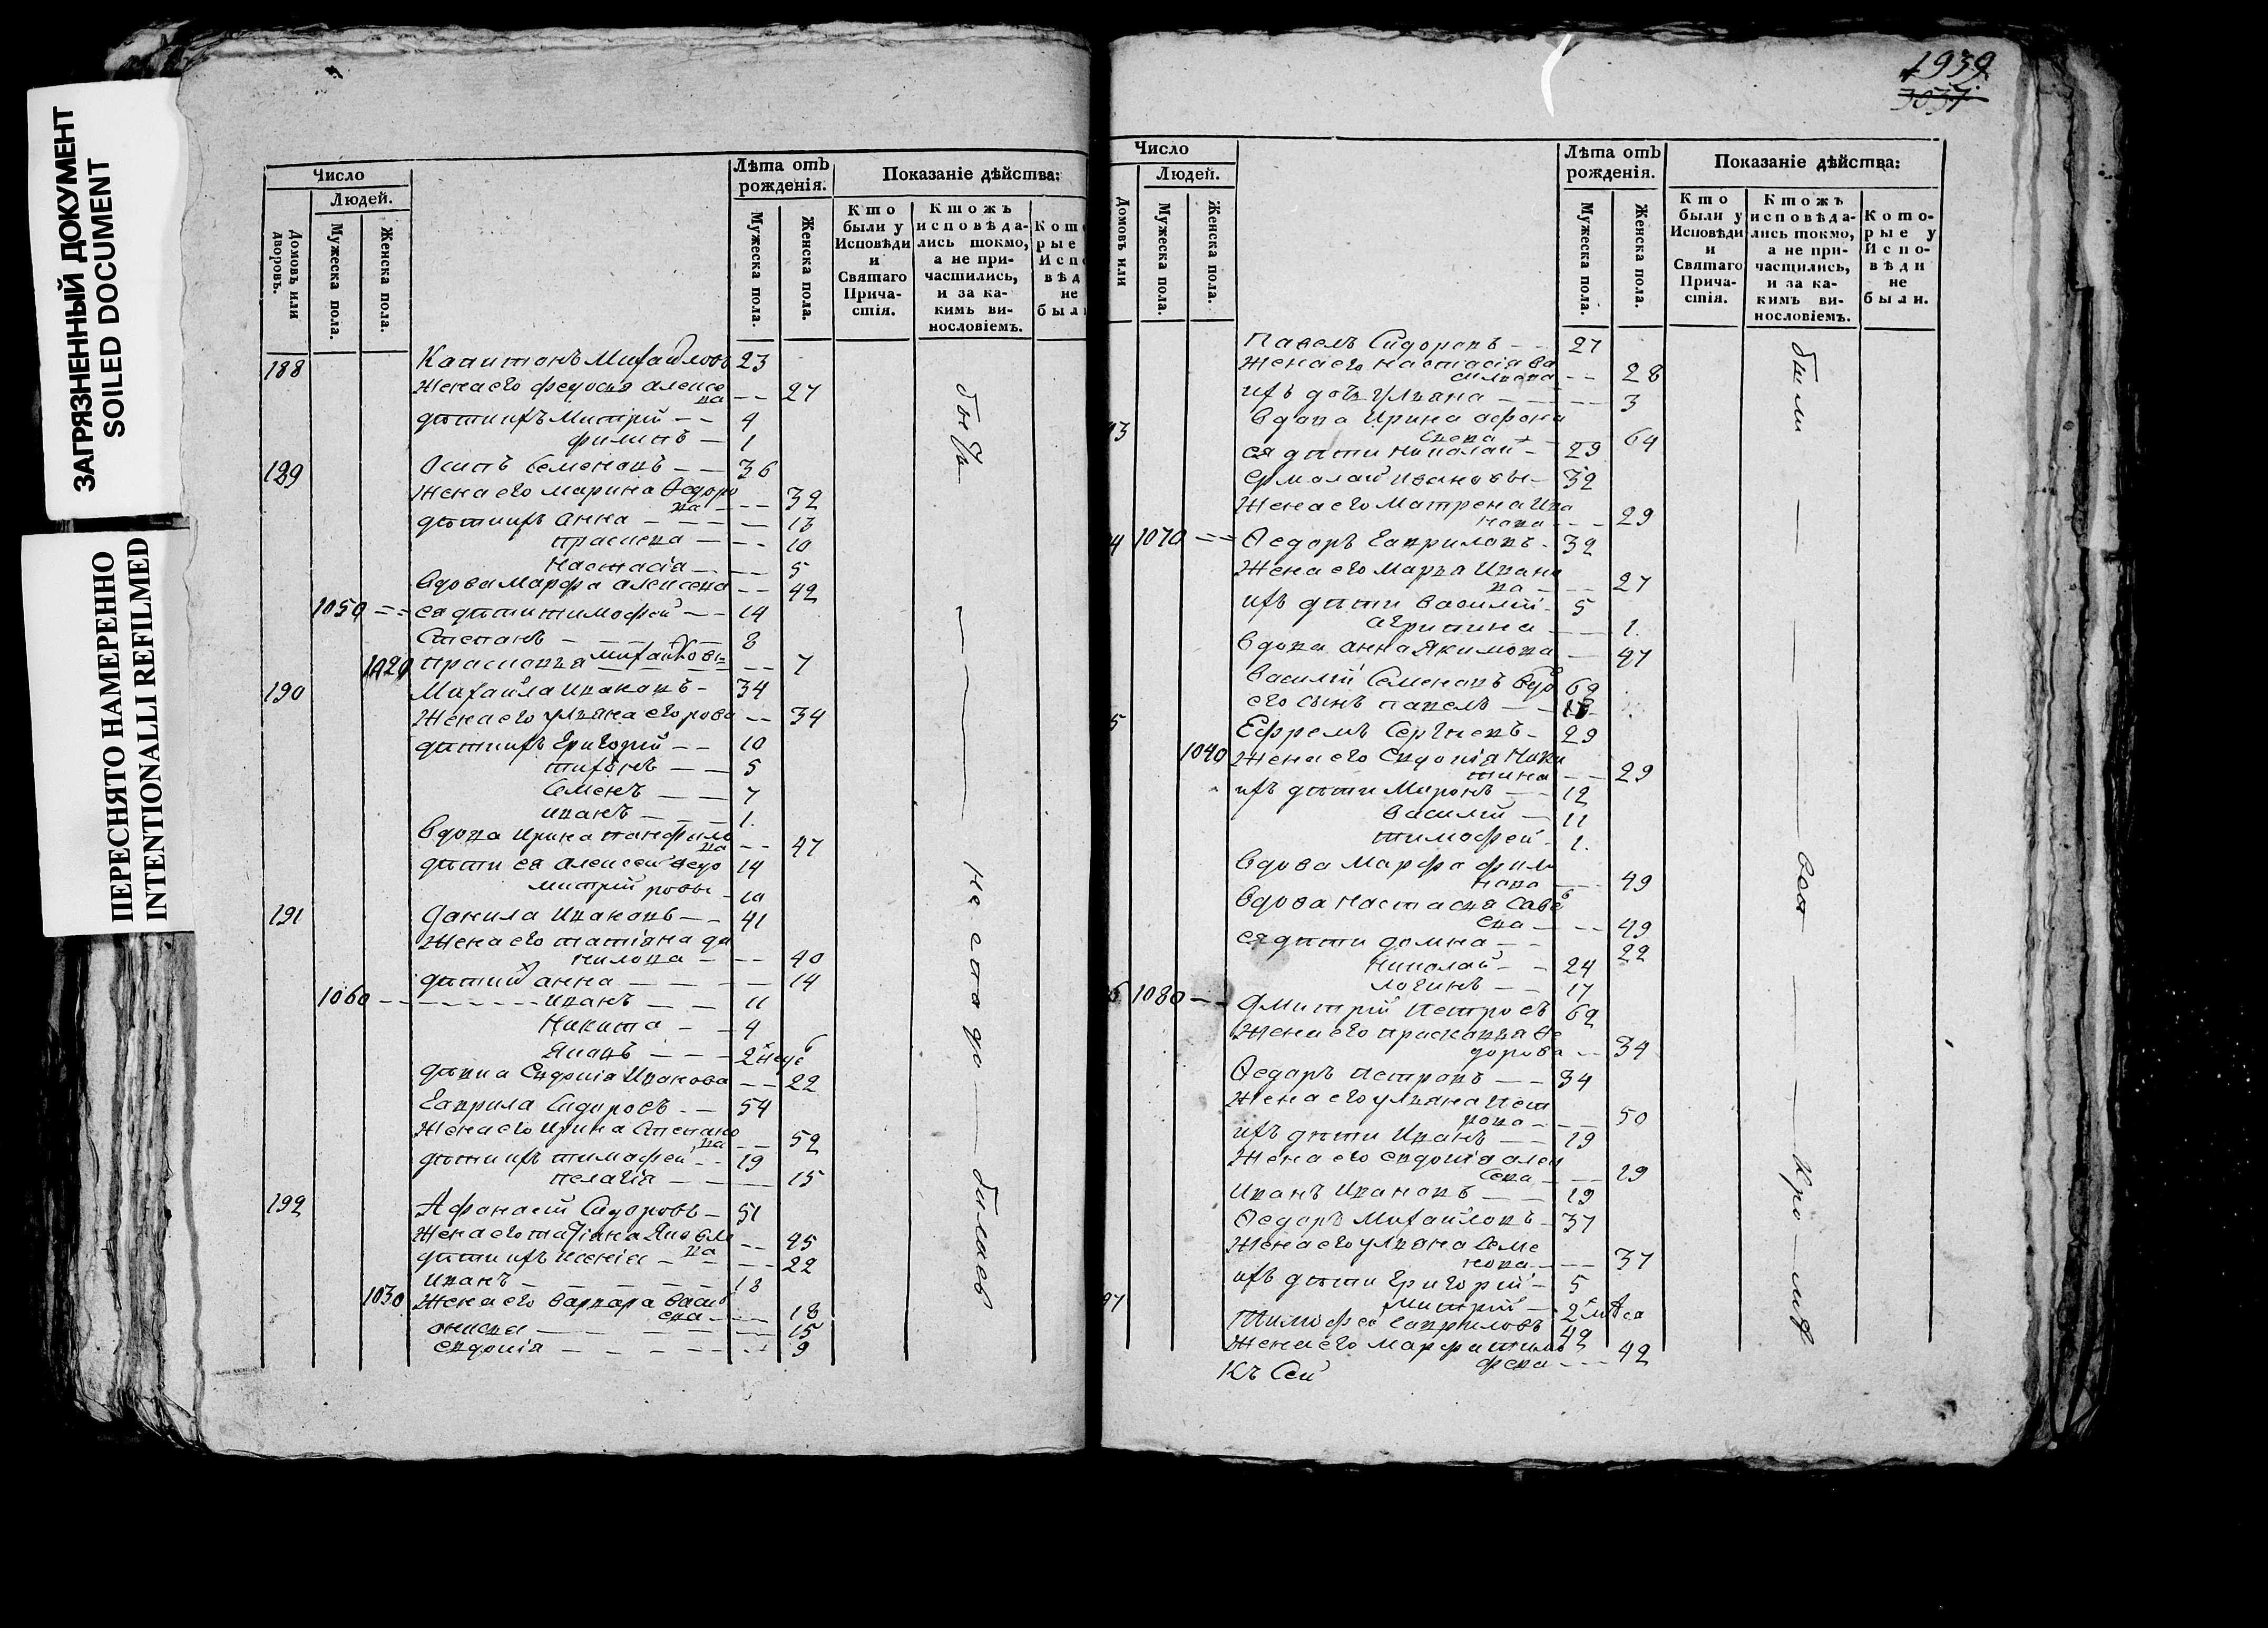 ЗАГРЯЗНЕННЫЙ ДОКУМЕНТ
SOILED DOCUMENT
ПЕРЕСНЯТО НАМЕРЕННО
INTENTIONALLI REFILMED
Число
Людей.
Домовъ или дворовъ.
Мужеска пола.
Женска пола.
Лѣта отъ рожденія.
Мужеска пола.
Женска пола.
Показаніе дѣйства:
Кто были у Исповѣди и Святаго Прича- стія.
Ктожъ исповѣда- лись токмо, а не при- частились, и за ка- кимъ ви- нословіемъ.
188 Капитонъ Михайловъ 23
Жена его Федосья Алексе ва -- 27
дѣти ихъ Митрій -- 4
Филипъ - 1
189 Осипъ Семеновъ -- 36
Жена его Марина Ѳедоро ва --- 32
дѣти ихъ Анна - - - - 13
Прасковя - -- 10
Настасія - -- 5
Вдова Марфа Алексева -- 42
1050 == ея дѣти Тимофей -- 14
Степанъ - - - - 8
1020 Прасковья Михайловы -- 7
190 Михайла Ивановъ - 34
Жена его Ульяна Егорова -- 34
дѣти ихъ Григорій -- 10
Тихонъ -- 5
Семенъ -- 7
Иванъ - - - 1.
Вдова Ирина Панфило ва -- 47
дѣти ея Алексей Ѳедо 14
Митрій ровы - 10
191 Данила Ивановъ -- 41
Жена его Татіяна Да
нилова - -- 40
дѣти их Анна - - - - 14
1060 - - Иванъ -- 11
Никита - - 4
Яковъ -- 2 неде
дѣвка Евдокія Иванова -- 22
Гаврила Сидоровъ - - 54
Жена его Ирина Степано ва -- 52
дѣти ихъ Тимофей -- 19
Пелагія - - - - 15
192 Афонасій Сидоровъ - 51
Жена его Татіяна Яковле ва -- 45
дѣти ихъ - - -- 22
Иванъ - - - - - 18
1030 Жена его Варвара Васи
ева - -- 18
- - - - - 15
Евдокія - - - - -- 9
не
1939
3037
Число
Людей.
Домовъ или
Мужеска пола.
Женска пола.
Лѣта отъ рожденія.
Мужеска пола.
Женска пола.
Показаніе дѣйства:
Кто были у Исповѣди и Святаго Прича- стія.
Ктожъ исповѣда- лись токмо, а не при- частились, и за ка- кимъ ви- нословіемъ.
Кото- рые у Испо- вѣди не были.
Павелъ Сидоровъ - - 27
Жена его Настасія Ва
силева -- 28
ихъ дочь Ульяна - - - - 3
93 Вдова Ирина Афона
сева - - 64
ея дѣти Николай - 29
Ермолай Ивановы - 32
Жена его Матрена Ива
нова - - - 29
94 1070 == Ѳедоръ Гавриловъ - 32
Жена его Марья Ивано
ва - - - 27
ихъ дѣти Василій - 5
Агрипина - - - 1.
Вдова Анна Якимова - 47
Василій Семеновъ Вдо 62
95 его сынъ Павелъ -- 18
Ефремъ Сергѣевъ - 29
1040 Жена его Евдокія Ники
тина - - - 29
ихъ дѣти Миронъ -- 12
Василій - 11
Тимофей - 1.
Вдова Марфа Фили
нова - -- 49
Вдова Настасья Саве
ева - - -- 49
ея дѣти Домна - - 22
Николай - - 24
Логинъ - - 17
96 1080 - - Дмитрій Петровъ 62
Жена его Прасковья Ѳе
дорова -- 34
Ѳедоръ Петровъ -- 34
Жена его Ульяна Пет
рова - - - 50
ихъ дѣти Иванъ -- 19
Жена его Евдокія Алек
сева - - - 19
Иванъ Ивановъ -- 19
Ѳедоръ Михайловъ - 37
Жена его Ульяна Семе
нова - - - 37
ихъ дѣти Григорій - 5
97 Митрій - 2
Тимофей Гавриловъ 42
Жена его Марфа Тимо
феева - - - 42
Къ Сей
были